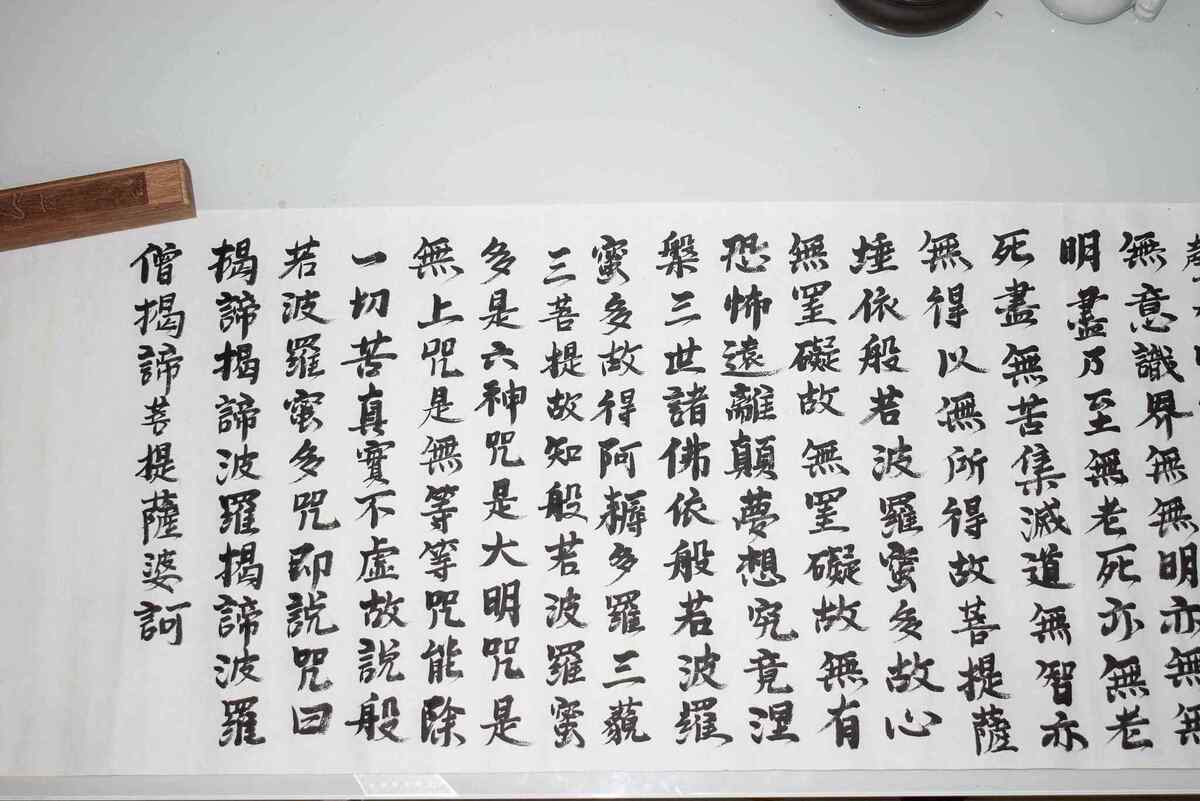 無意識界無無明亦無無
明盡乃至無老死亦無老
死盡無苦集滅道無智亦
無得以無所得故菩提薩
埵依般若波羅蜜多故心
無罣礙故無罣礙故無有
恐怖遠離顛夢想究竟涅
槃三世諸佛依般若波羅
蜜多故得阿耨多羅三藐
三菩提故知般若波羅蜜
多是六神咒是大明咒是
無上咒是無等等咒能除
一切苦真實不虛故說般
若波羅蜜多咒即說咒曰
揭諦揭諦波羅揭諦波羅
僧揭諦菩提薩婆訶